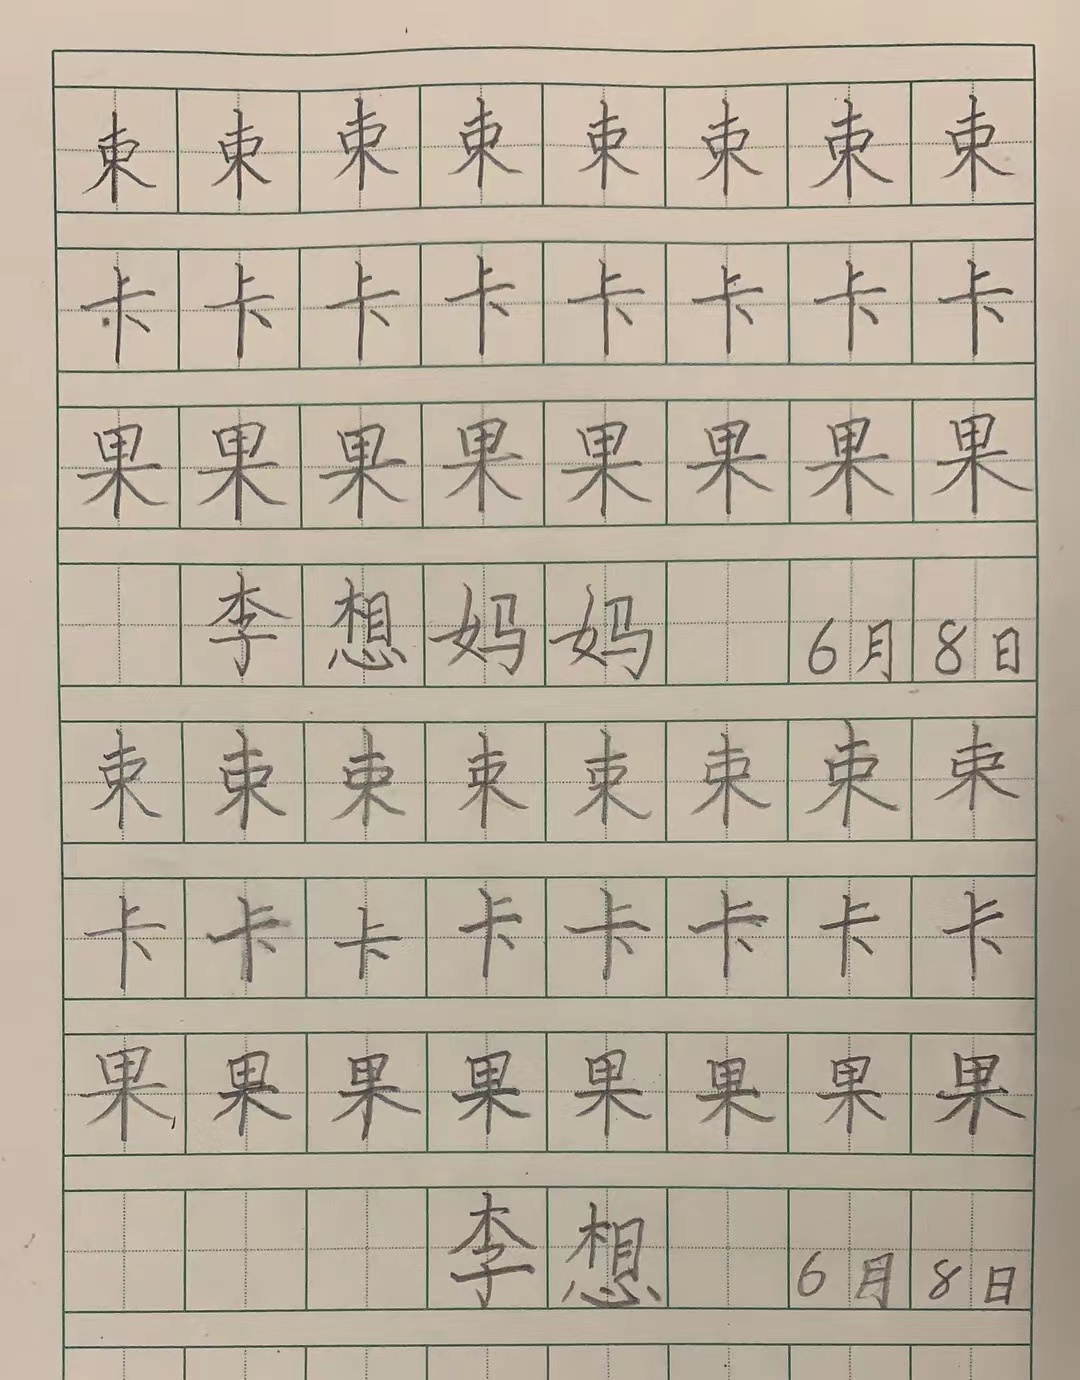 束束束束束束束束
卡卡卡卡卡卡卡卡
果果果果果果果果
李想妈妈 6月8日
束束束束束束束束
卡卡卡卡卡卡卡卡
果果果果果果果果
李想 6月8日